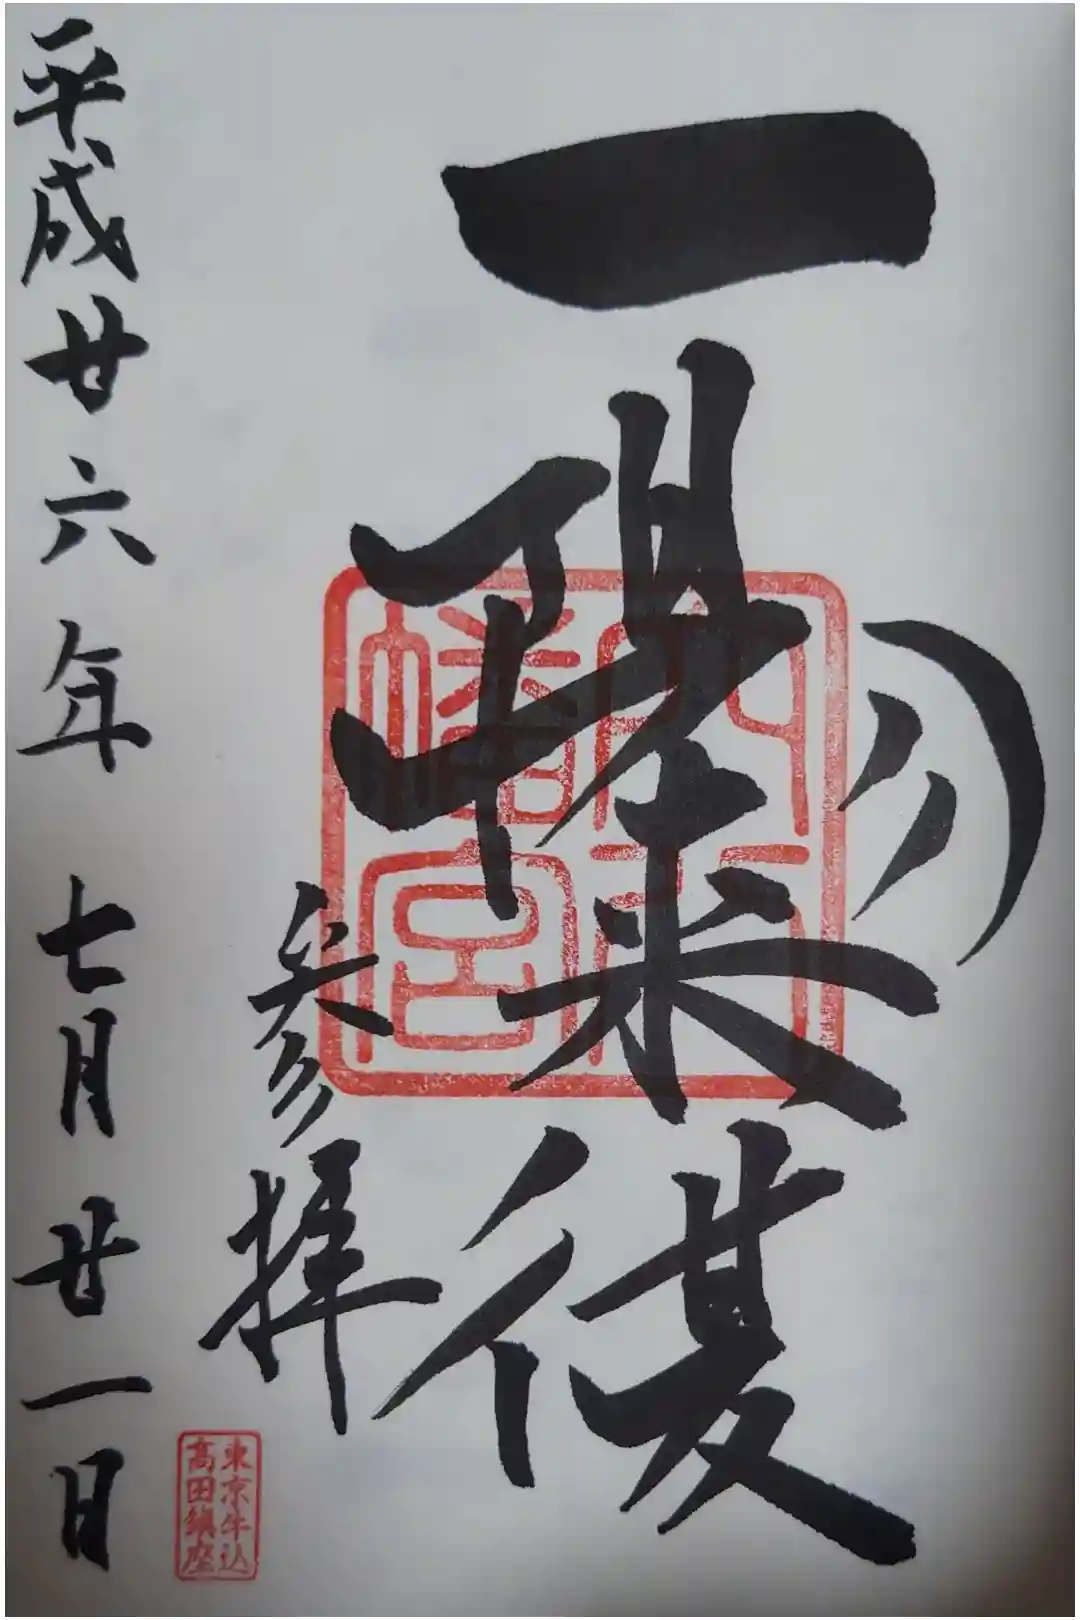 一陽来復
穴八
幡宮
参拝
平成廿六年七月廿一日
東京牛込
高田鎮座